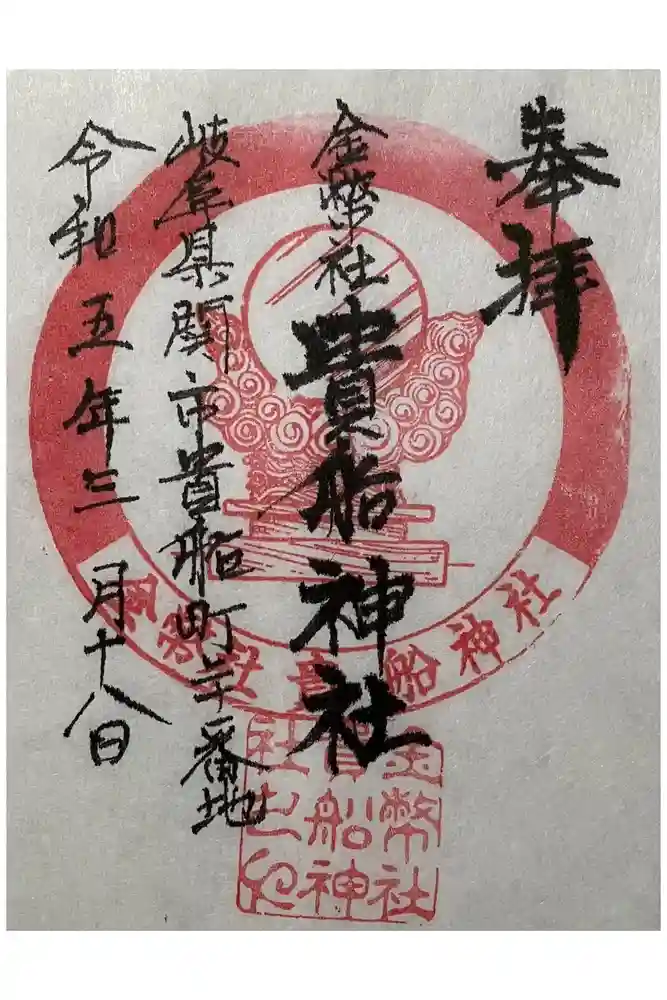 奉拝
金幣社 貴船神社
岐阜県関市貴船町 番地
令和五年三月十八日
金幣社 貴船神社
金幣社
貴船神
社之印